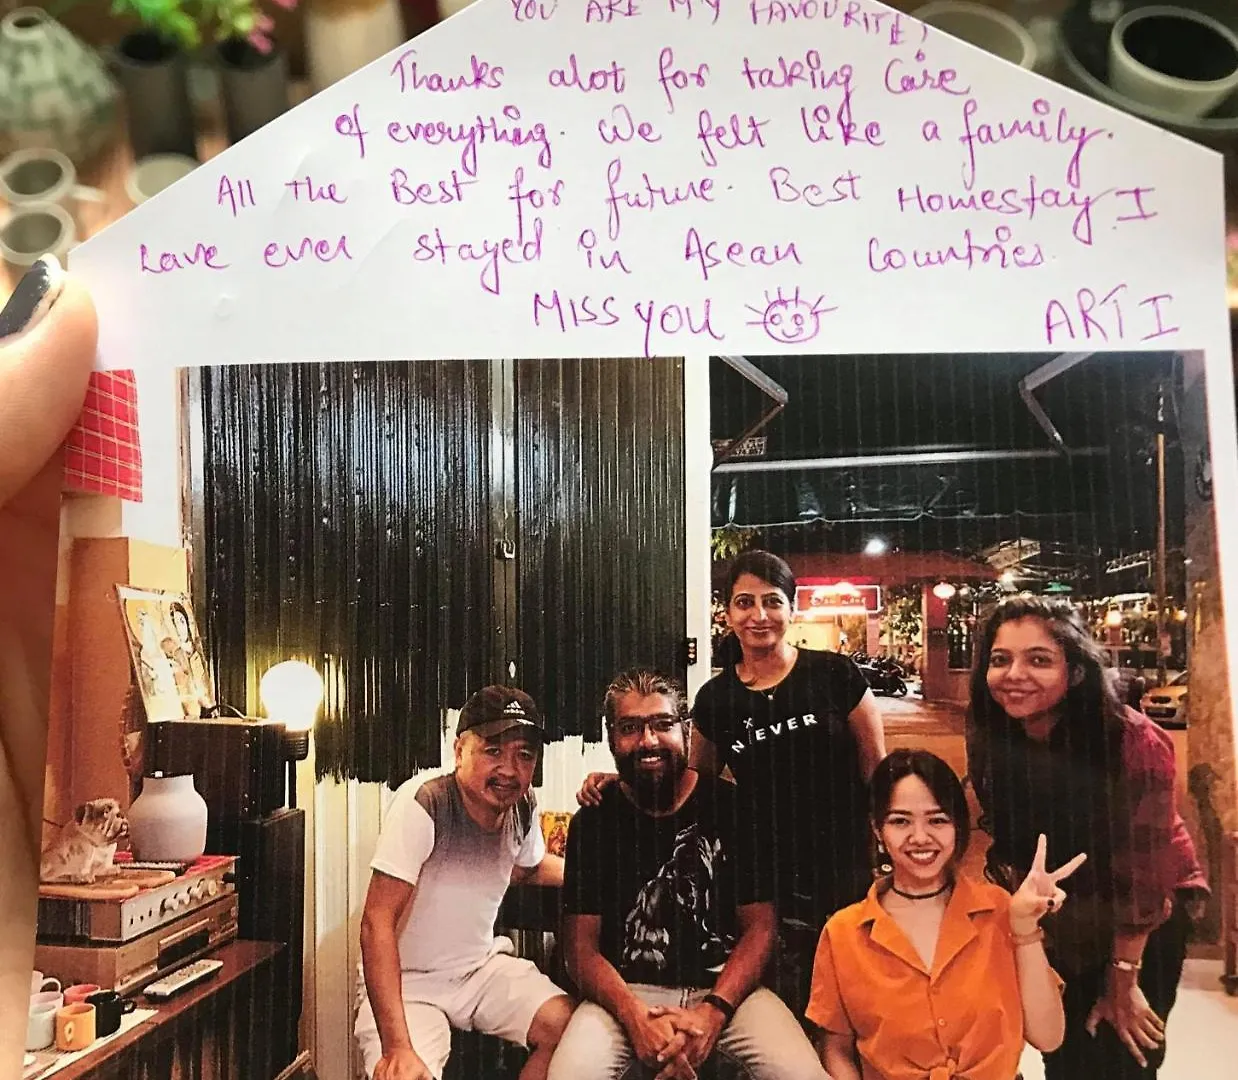 YOU ARE MY FAVOURITE!
Thanks alot for taking Care
of everything. We felt like a family.
All the Best for future. Best Homestay I
have ever stayed in Asean Countries.
MISS YOU
ARTI
adidas
NEVER